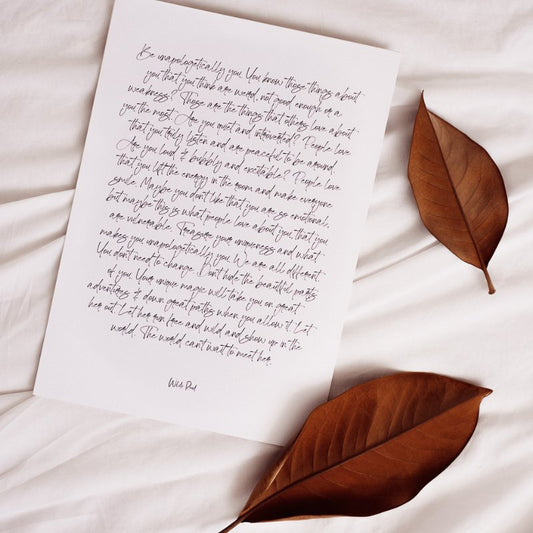 Be unapologetically you. You know those things about
you that you think are weird, not good enough or a
weakness? Those are the things that others love about
you the most. Are you quiet and introverted? People love
that you truly listen and are peaceful to be around.
Are you loud & bubbly and excitable? People love
that you lift the energy in the room and make everyone
smile. Maybe you don't like that you are so emotional,
but maybe this is what people love about you, that you
are vulnerable. Treasure your uniqueness and what
makes you unapologetically you. We are all different.
You don't need to change. Don't hide the beautiful parts
of you. Your unique magic will take you on great
adventures & down great paths when you allow it. Let
her out. Let her run free and wild and show up in the
world. The world can't wait to meet her.